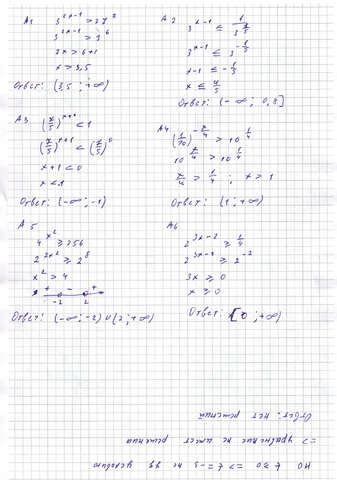 A1
3^(2x-1) > 27^2
3^(2x-1) > 3^6
2x > 6+1
x > 3,5
Ответ: (3,5 ; +∞)
A2
x-1 ≤ -1/5
x ≤ 4/5
Ответ: (-∞ ; 0,8]
A3
(7/5)^(x+1) < 1
(7/5)^(x+1) < (7/5)^0
x+1 < 0
Ответ: (-∞ ; -1)
A4
(1/10)^(-x/4) > 10^(1/4)
10^(x/4) > 10^(1/4)
x/4 > 1/4 ; x > 1
Ответ: (1 ; +∞)
A5
4^(x^2) ≥ 256
2^(2x^2) ≥ 2^8
x^2 > 4
+ - +
-2 2
Ответ: (-∞ ; -2) ∪ (2 ; +∞)
A6
2^(3x-2) ≥ 1/4
2^(3x-2) ≥ 2^(-2)
3x ≥ 0
x ≥ 0
Ответ: [0 ; +∞)
но t ≥ 0 => t = -5 не уд условию
=> уравнение не имеет решения
Ответ: нет решений